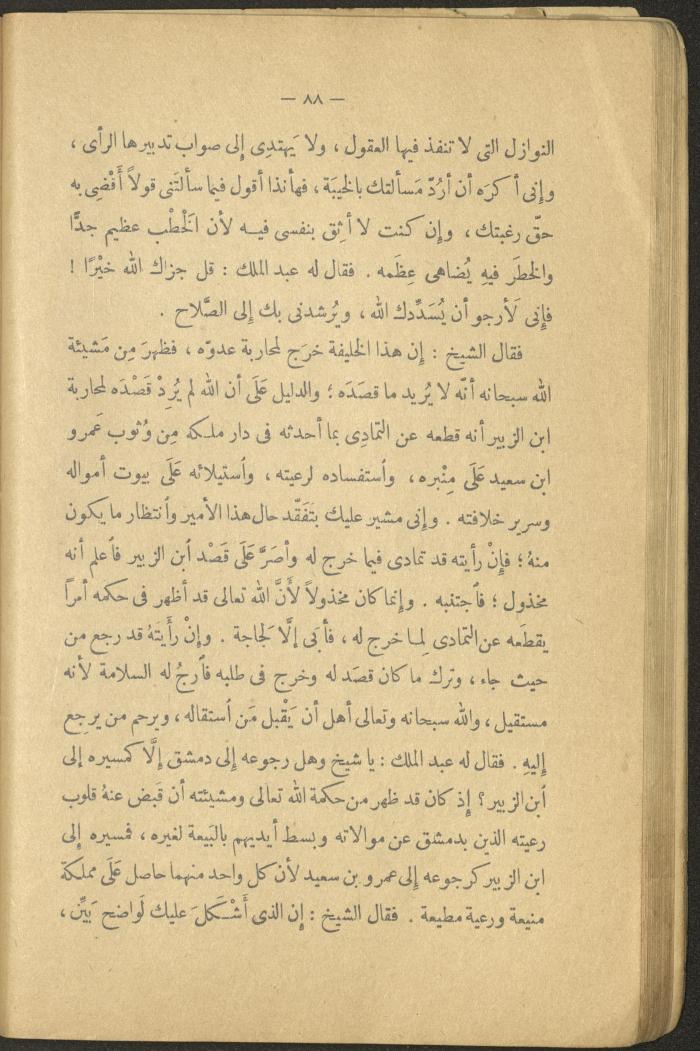 — ٨٨ —
النوازل التى لا تنفذ فيها العقول ، ولا يَهتدِى إِلى صواب تدبيرها الرأى ،
وإنى أكرَه أن أرُدّ مَسألتك بالخيبَة ، فهأنذا أقول فيما سألتَنى قولاً أَقْضِى به
حقّ رغبتك ، وإن كنت لا أثِق بنفسى فيه لأن الخَطْب عظيم جدًّا
والخطَر فيهِ يُضاهى عِظَمه . فقال له عبد الملك : قل جزاك الله خيْرًا !
فإنى لَأرجو أن يُسَدِّدك الله ، ويُرشدنى بك إلى الصَّلاح .
فقال الشيخ : إن هذا الخليفة خرَج لمحاربة عدوّه ، فظهرَ مِن مَشيئة
الله سبحانه أنّه لا يُريد ما قصَدَه ؛ والدليل عَلَى أن الله لم يُرِدْ قَصْدَه لمحاربة
ابن الزبير أنه قطعه عن التمَّادِى بما أحدثه فى دار ملكه مِن وُثوب عَمرو
ابن سعيد عَلَى مِنْبره ، وأستفساده لرعيته ، وأستيلائه عَلَى بيوت أمواله
وسرير خلافته . وإنى مشير عليك بتَفَقّد حال هذا الأمير وأنتظار ما يكون
منهُ ؛ فإنْ رأيته قد تمادى فيما خرج له وأصَرَّ عَلَى قَصْد أبن الزبير فأعلم أنه
مخذول ؛ فأجتنبه . وإنما كان مخذولاً لأَنَّ الله تعالى قد أظهر فى حكمه أمراً
يقطَعه عن التمادى لِما خرج له ، فأبَى إلَّا لَجاجة . وإنْ رأَيتَهُ قد رجع من
حيث جاء ، وترك ما كان قصَد له وخرج فى طلبه فأرجُ له السلامة لأنه
مستقيل ، والله سبحانه وتعالى أهل أن يَقْبل مَن أستقاله ، ويرحم من يرجع
إليهِ . فقال له عبد الملك : يا شيخ وهل رجوعه إلى دمشق إلَّا كمسيره إلى
أبن الزبير ؟ إذ كان قد ظهر من حكمة الله تعالى ومشيئته أن قبَض عنهُ قلوب
رعيته الذين بدمشق عن موالاته وبسط أيديهم بالبَيعة لغيره ، فمسيره إلى
ابن الزبير كرجوعه إلى عمرو بن سعيد لأن كل واحد منهما حاصل عَلَى مملكة
منيعة ورعية مطيعة . فقال الشيخ : إن الذى أَشْكَلَ عليك لَواضح بَيِّن ،